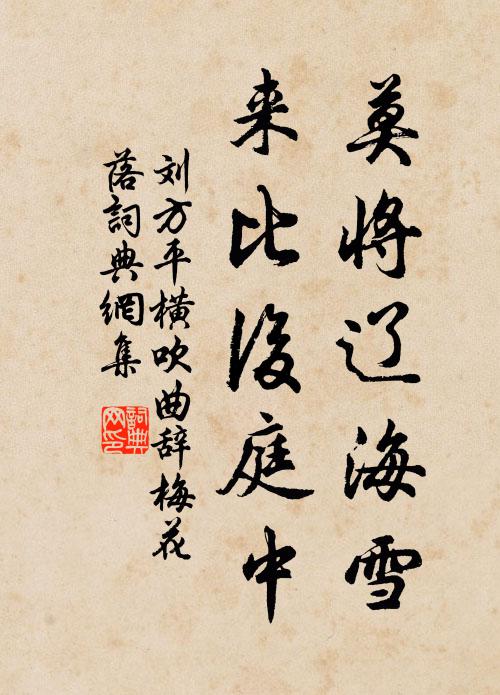 莫将辽海雪
来比后庭中
刘方平横吹曲辞梅花
落詞典網集
詞典
网印